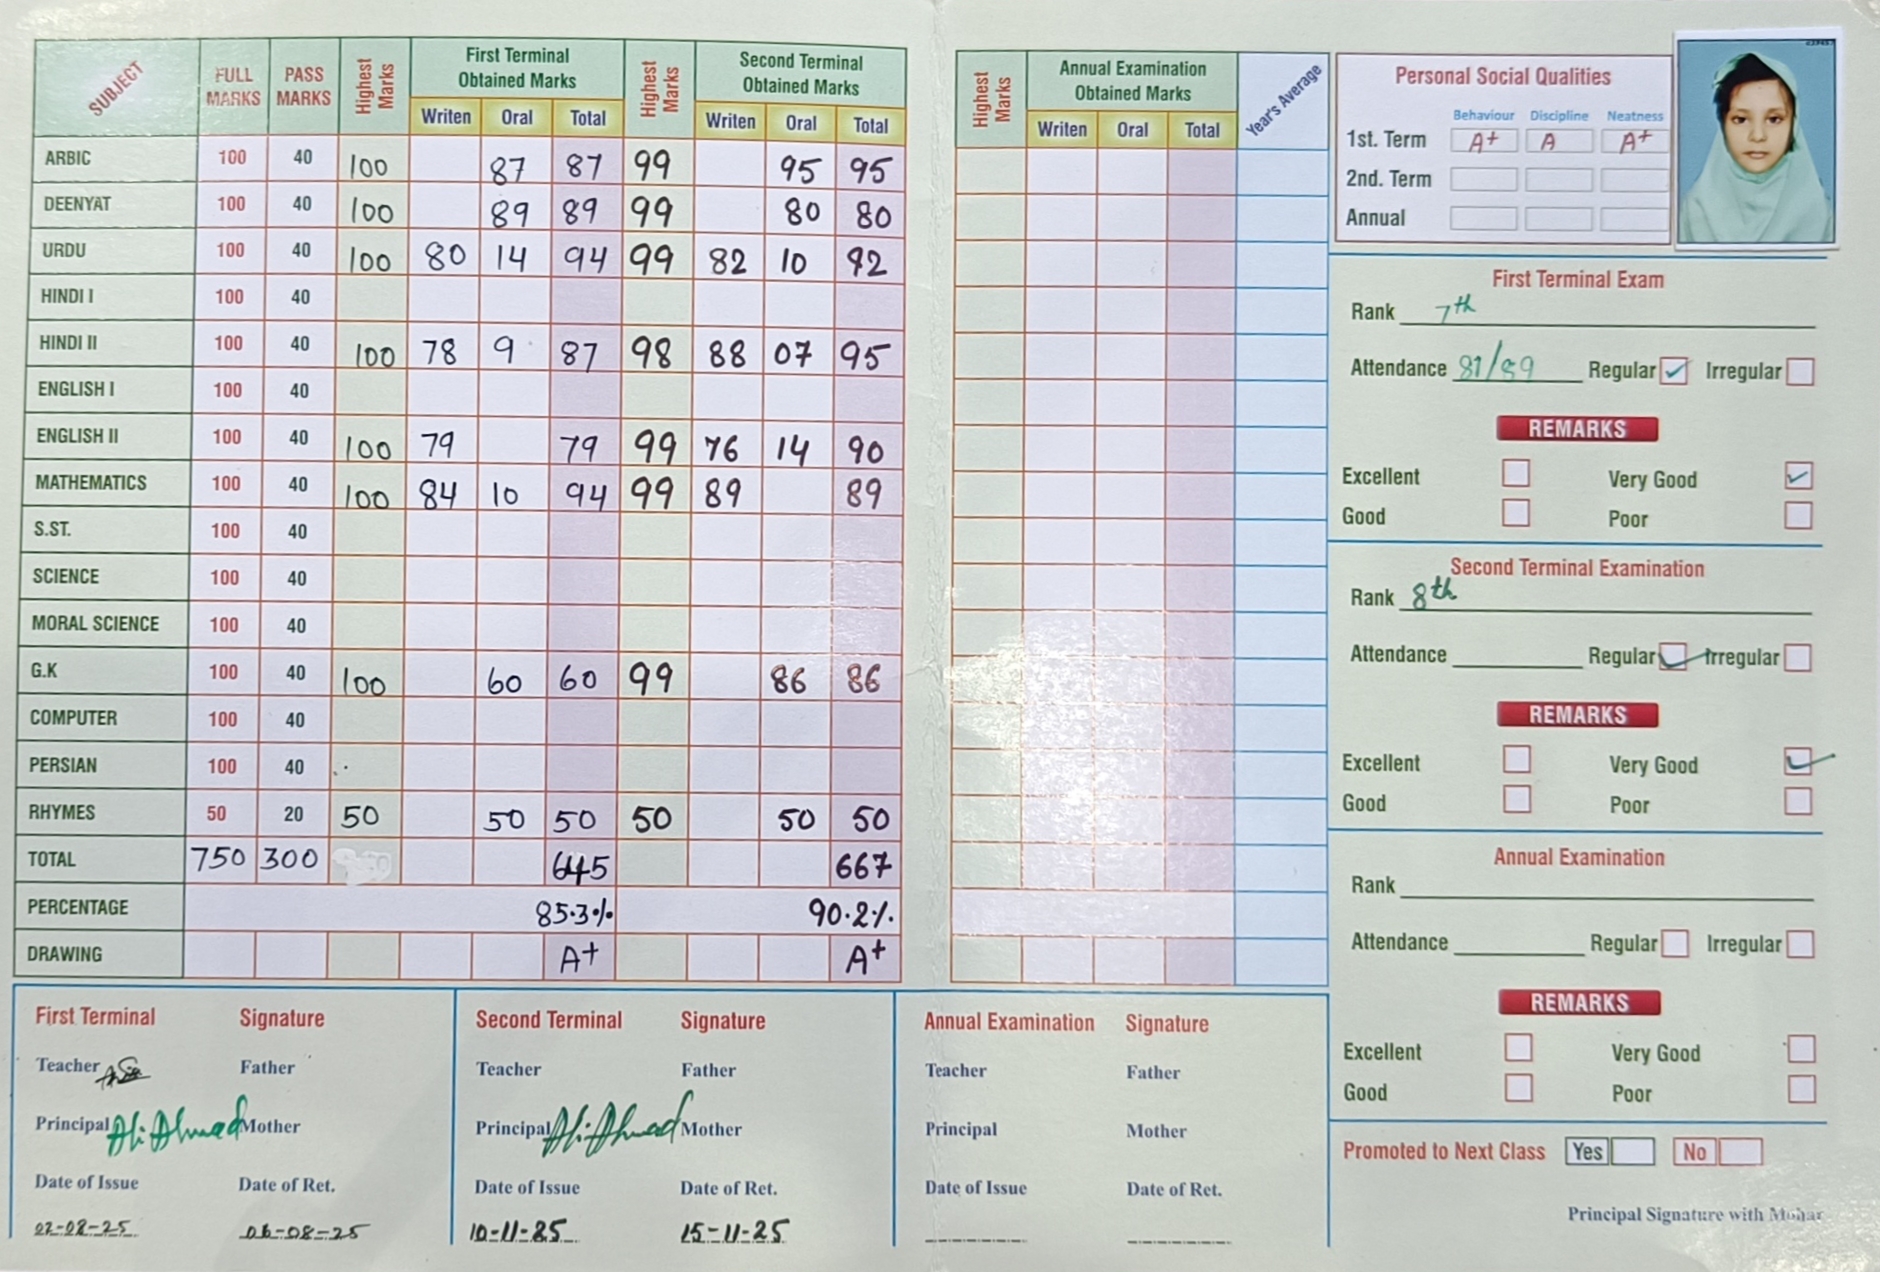 SUBJECT FULL MARKS PASS MARKS Highest Marks First Terminal Obtained Marks Highest Marks Second Terminal Obtained Marks
Writen Oral Total Writen Oral Total
ARBIC 100 40 100 87 87 99 95 95
DEENYAT 100 40 100 89 89 99 80 80
URDU 100 40 100 80 14 94 99 82 10 92
HINDI I 100 40
HINDI II 100 40 100 78 9 87 98 88 07 95
ENGLISH I 100 40
ENGLISH II 100 40 100 79 79 99 76 14 90
MATHEMATICS 100 40 100 84 10 94 99 89 89
S.ST. 100 40
SCIENCE 100 40
MORAL SCIENCE 100 40
G.K 100 40 100 60 60 99 86 86
COMPUTER 100 40
PERSIAN 100 40
RHYMES 50 20 50 50 50 50 50 50
TOTAL 750 300 645 667
PERCENTAGE 85.3% 90.2%
DRAWING A+ A+
Highest Marks Annual Examination Obtained Marks Year's Average
Writen Oral Total
Personal Social Qualities
Behaviour Discipline Neatness
1st. Term A+ A A+
2nd. Term
Annual
First Terminal Exam
Rank 7th
Attendance 81/89 Regular ✓ Irregular
REMARKS
Excellent Very Good ✓
Good Poor
Second Terminal Examination
Rank 8th
Attendance Regular ✓ Irregular
REMARKS
Excellent Very Good ✓
Good Poor
Annual Examination
Rank
Attendance Regular Irregular
REMARKS
Excellent Very Good
Good Poor
Promoted to Next Class Yes No
Principal Signature with Mohar
First Terminal Signature
Teacher Father
Principal Ali Ahmad Mother
Date of Issue Date of Ret.
02-08-25 06-08-25
Second Terminal Signature
Teacher Father
Principal Ali Ahmad Mother
Date of Issue Date of Ret.
10-11-25 15-11-25
Annual Examination Signature
Teacher Father
Principal Mother
Date of Issue Date of Ret.